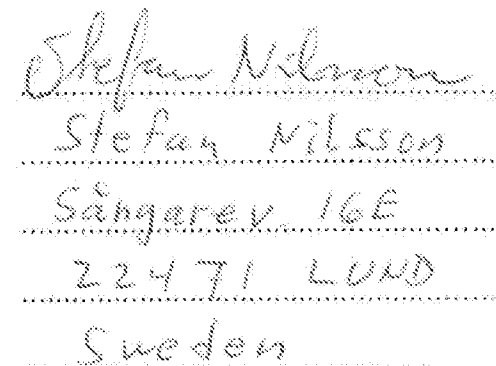 Stefan Nilsson
Stefan Nilsson
Sångarev. 16E
22471 LUND
Sweden